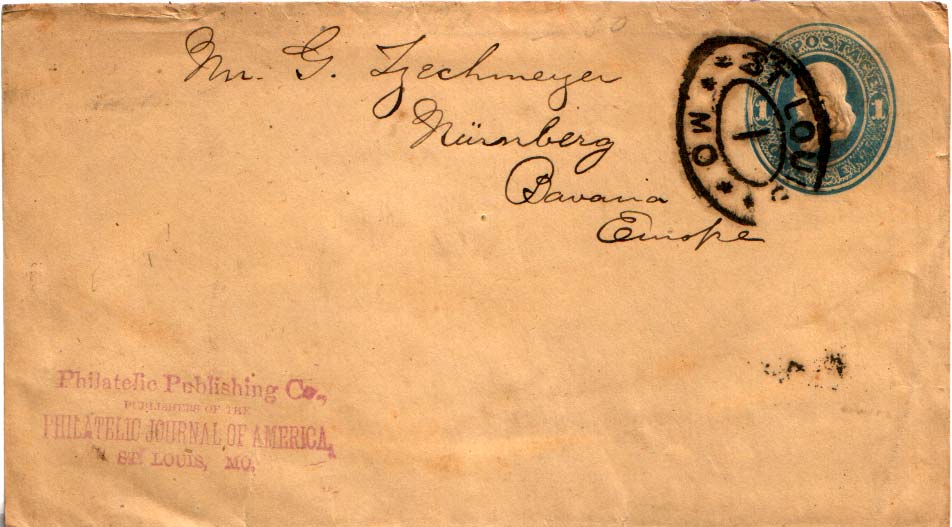 Mr. G. Zechmeyer
Nürnberg
Bavaria
Europe
ST. LOUIS
MO
1
POSTAGE
1
1
Philatelic Publishing Co.,
PUBLISHERS OF THE
PHILATELIC JOURNAL OF AMERICA,
ST. LOUIS, MO.